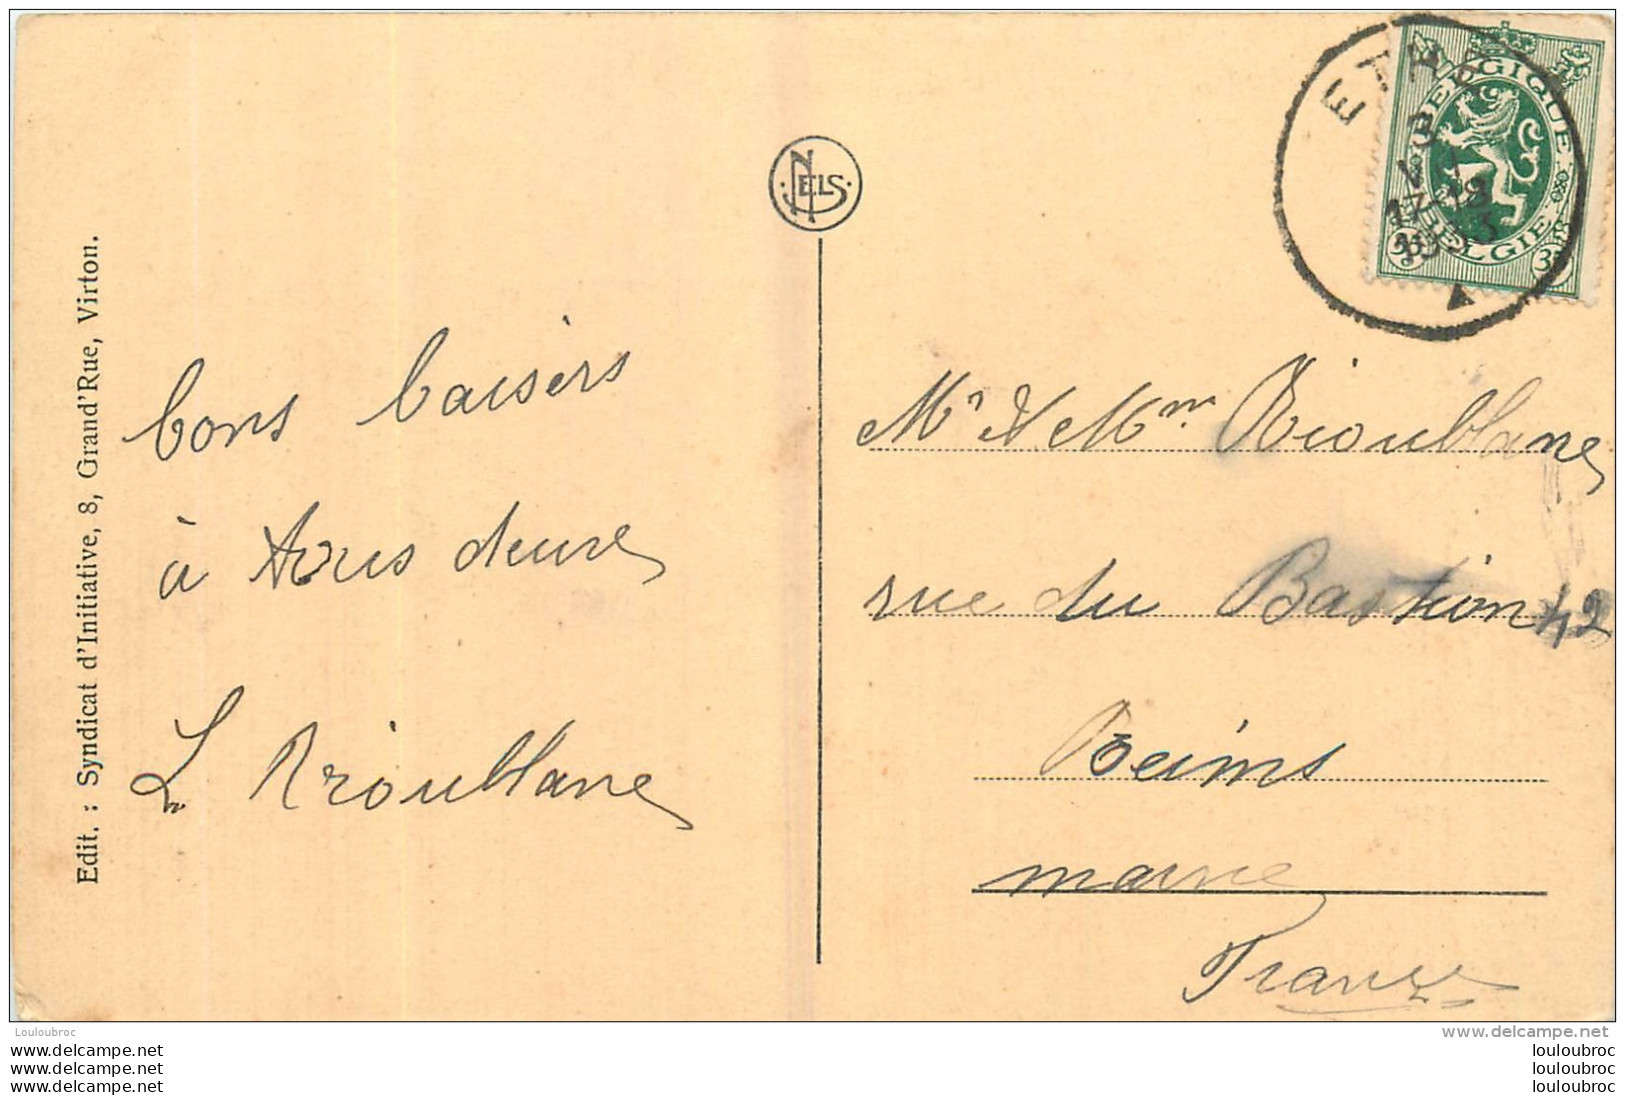 Edit. : Syndicat d'Initiative, 8, Grand'Rue, Virton.
NELS
bons baisers
à tous deux
L Rioublanc
BELGIQUE
BELGIE
35
35
ET
3
17-18
1933
Mr & Mme Rioublanc
rue du Bastion 42
Reims
marne
France
Louloubroc
delcampe.net
www.delcampe.net
www.delcampe.net
www.delcampe.net
louloubroc
louloubroc
louloubroc